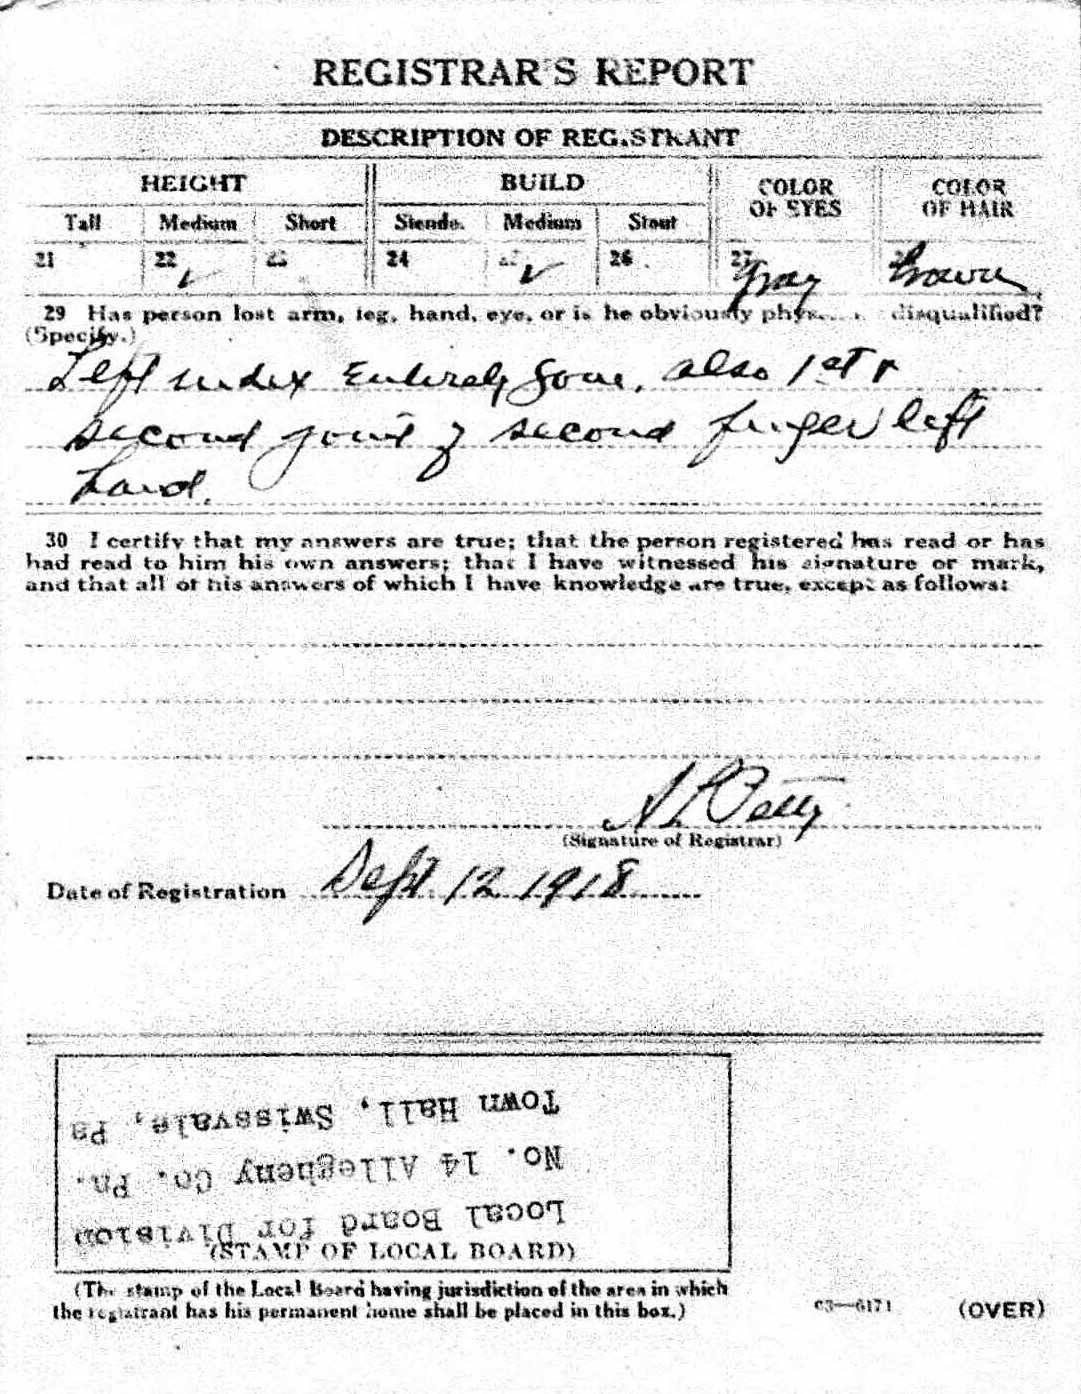 REGISTRAR'S REPORT
DESCRIPTION OF REGISTRANT
HEIGHT BUILD COLOR OF EYES COLOR OF HAIR
Tall Medium Short Slender Medium Stout
21 22 ✓ 23 24 25 ✓ 26 27 Gray 28 Brown
29 Has person lost arm, leg, hand, eye, or is he obviously physically disqualified?
(Specify.)
Left index Entirely gone, also 1st &
second joint of second finger left
hand.
30 I certify that my answers are true; that the person registered has read or has
had read to him his own answers; that I have witnessed his signature or mark,
and that all of his answers of which I have knowledge are true, except as follows:
Petty
(Signature of Registrar)
Date of Registration Sept. 12 1918
Local Board for Division
No. 14 Allegheny Co. Pa.
Town Hall, Swissvale, Pa
(STAMP OF LOCAL BOARD)
(The stamp of the Local Board having jurisdiction of the area in which
the registrant has his permanent home shall be placed in this box.)
03—6171 (OVER)